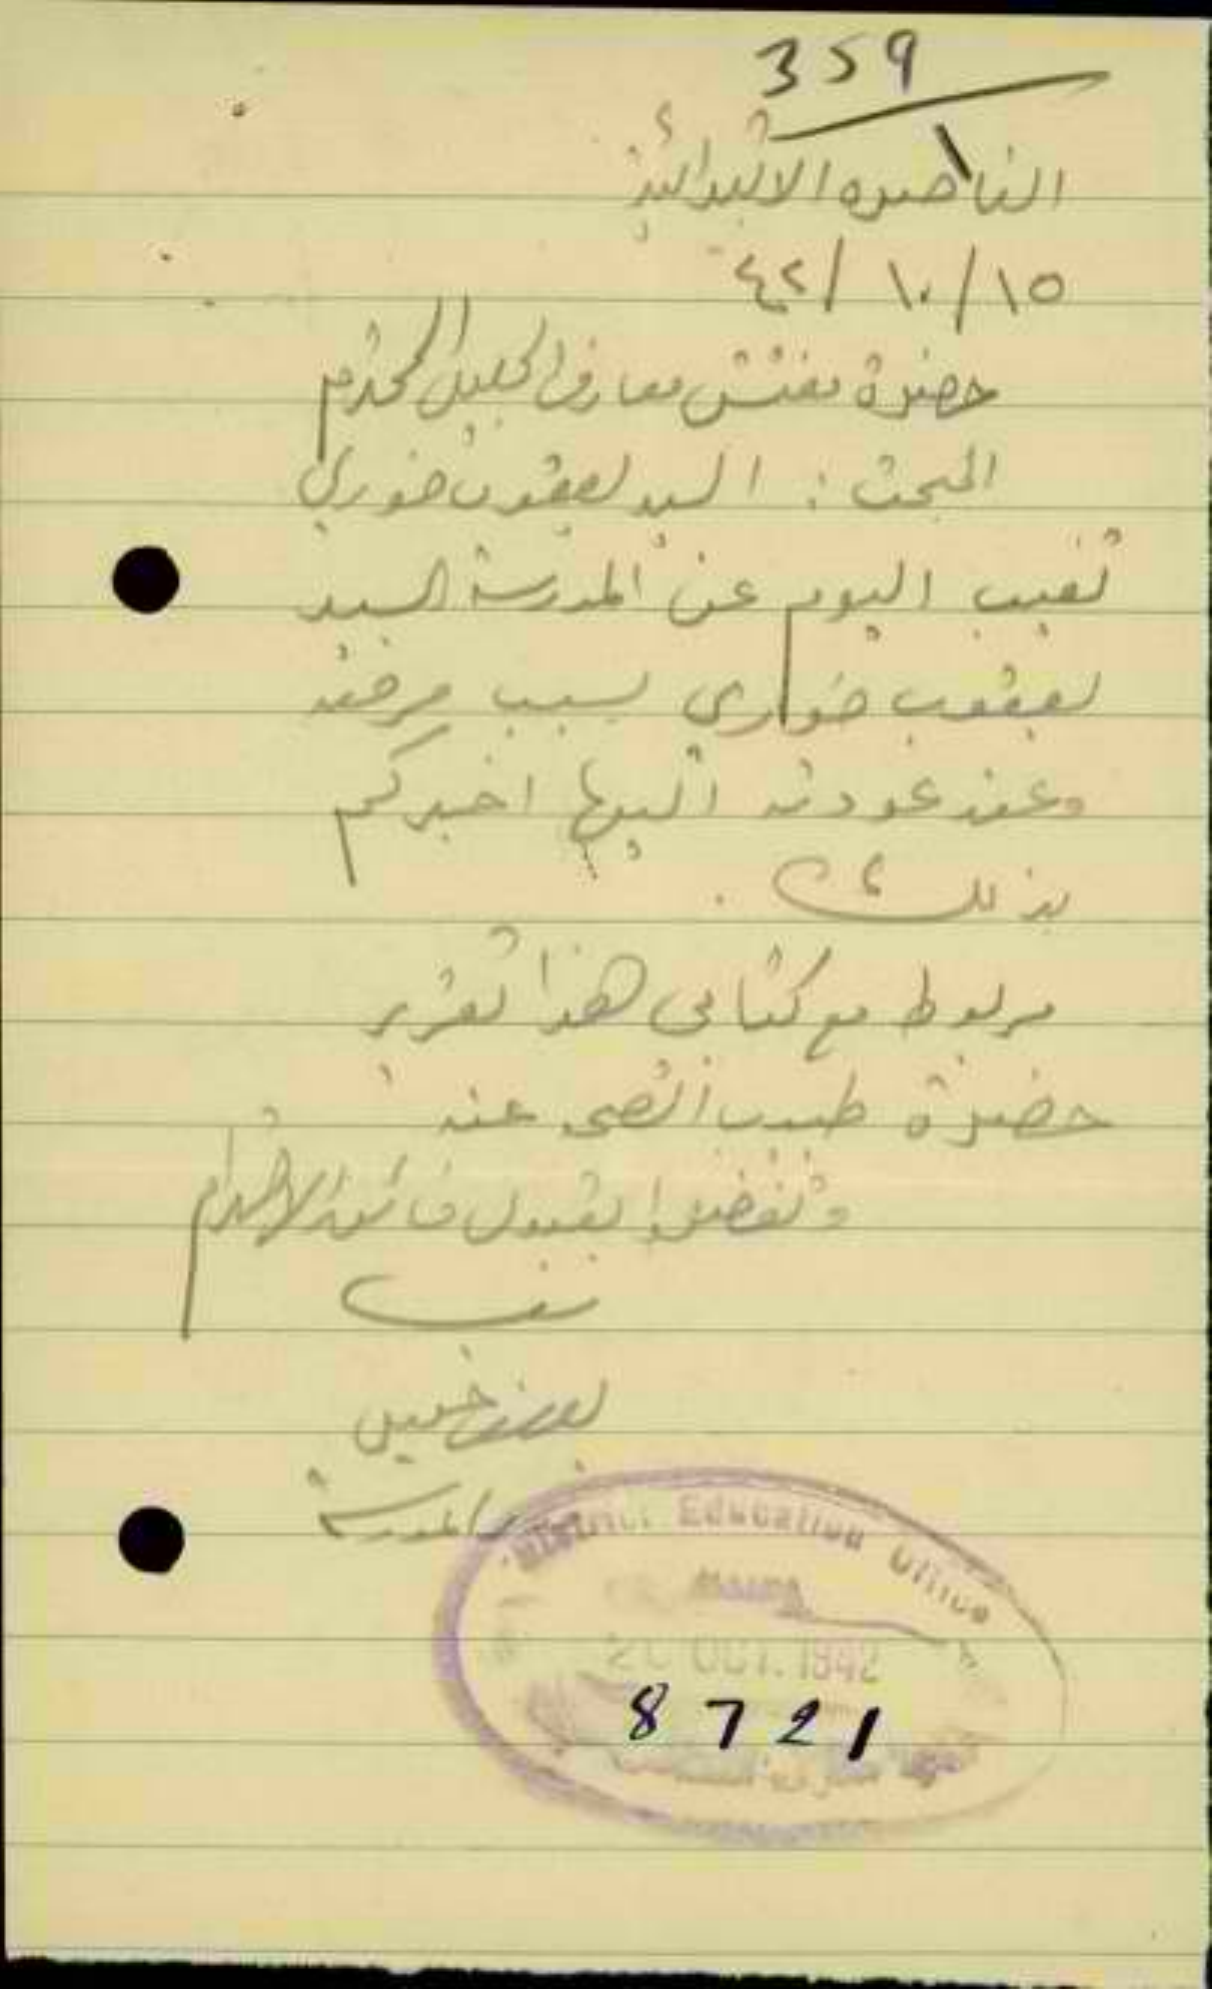 359
الناصره الابتدائية
١٥/١٠/٤٢
حضرة مفتش معارف الجليل المحترم
المبحث : السيد يعقوب خوري
تغيب اليوم عن المدرسة السيد
يعقوب خوري بسبب مرضه
وعند عودته اليها اخبركم
بذلك .
مربوط مع كتابي هذا تقرير
حضرة طبيب الصحة عنه
وتفضلوا بقبول فائق الاحترام
خليل
مدير المدرسة
District Education Office
20 OCT. 1942
8721